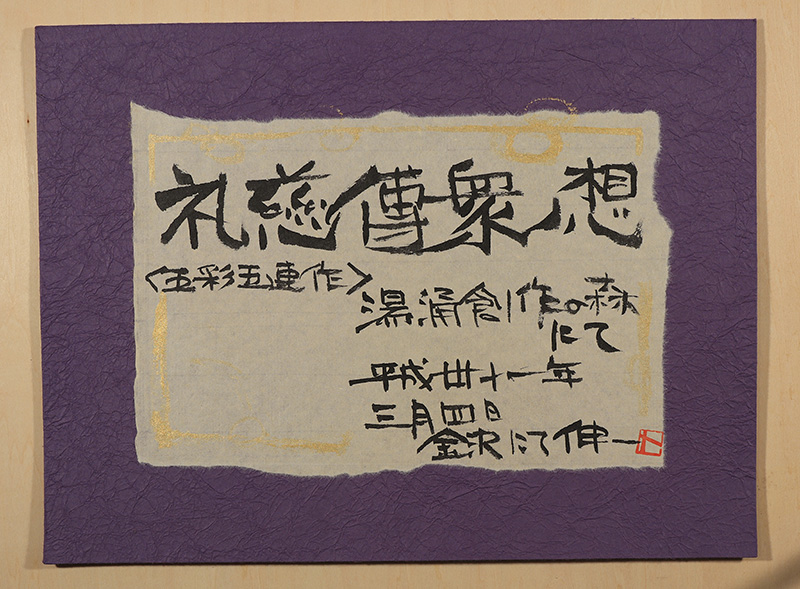 礼慈傳衆想
〈五彩五連作〉
湯涌創作の森
にて
平成丗十一年
三月四日
金沢にて 伸一